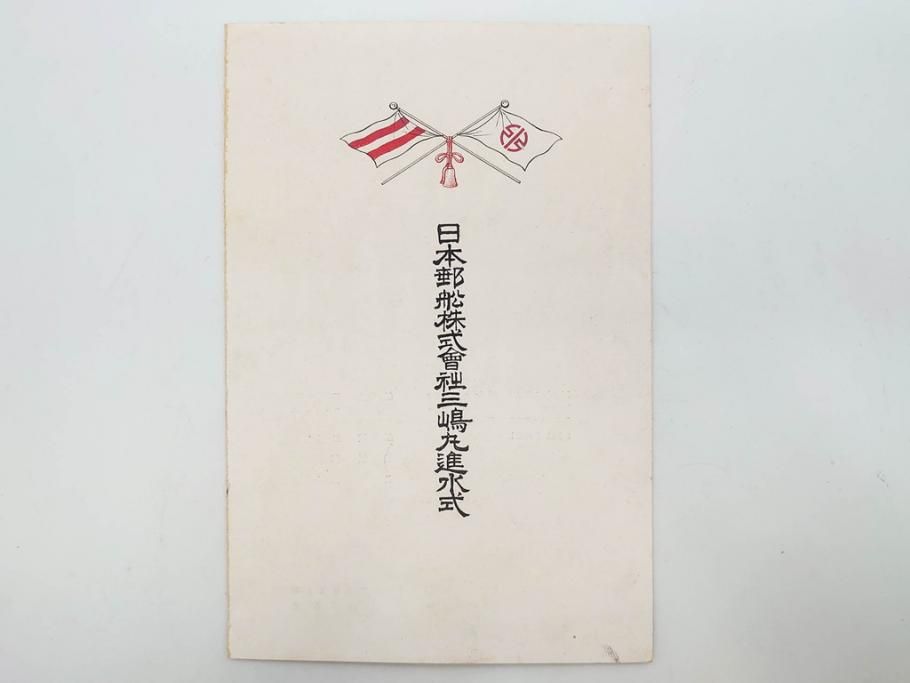 日本郵舩株式會社三嶋丸進水式